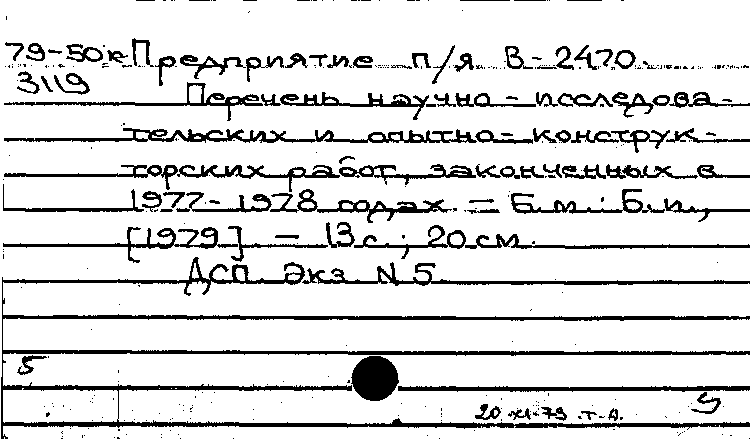 79-50к Предприятие п/я В-2470.
3119
Перечень научно-исследова-
тельских и опытно-конструк-
торских работ, законченных в
1977-1978 годах. - Б.м.: Б.и.,
[1979]. - 13 с.; 20 см.
ДСП. Экз. N 5.
5
20-XI-79 т-